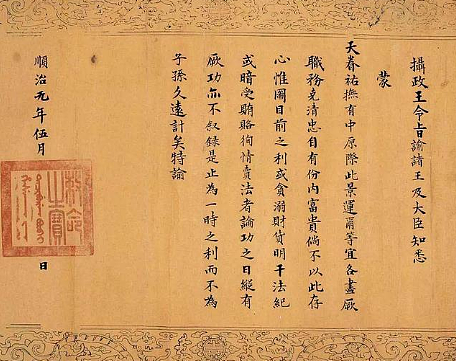 攝政王令旨諭諸王及大臣知悉
蒙
天眷祐撫有中原際此景運爾等宜各盡厥
職務克清忠自有份內富貴倘不以此存
心惟圖目前之利或貪溺財貨明干法紀
或暗受賄賂徇情賣法者論功之日縱有
厥功亦不叙録是止為一時之利而不為
子孫久遠計矣特諭
順治元年伍月 日